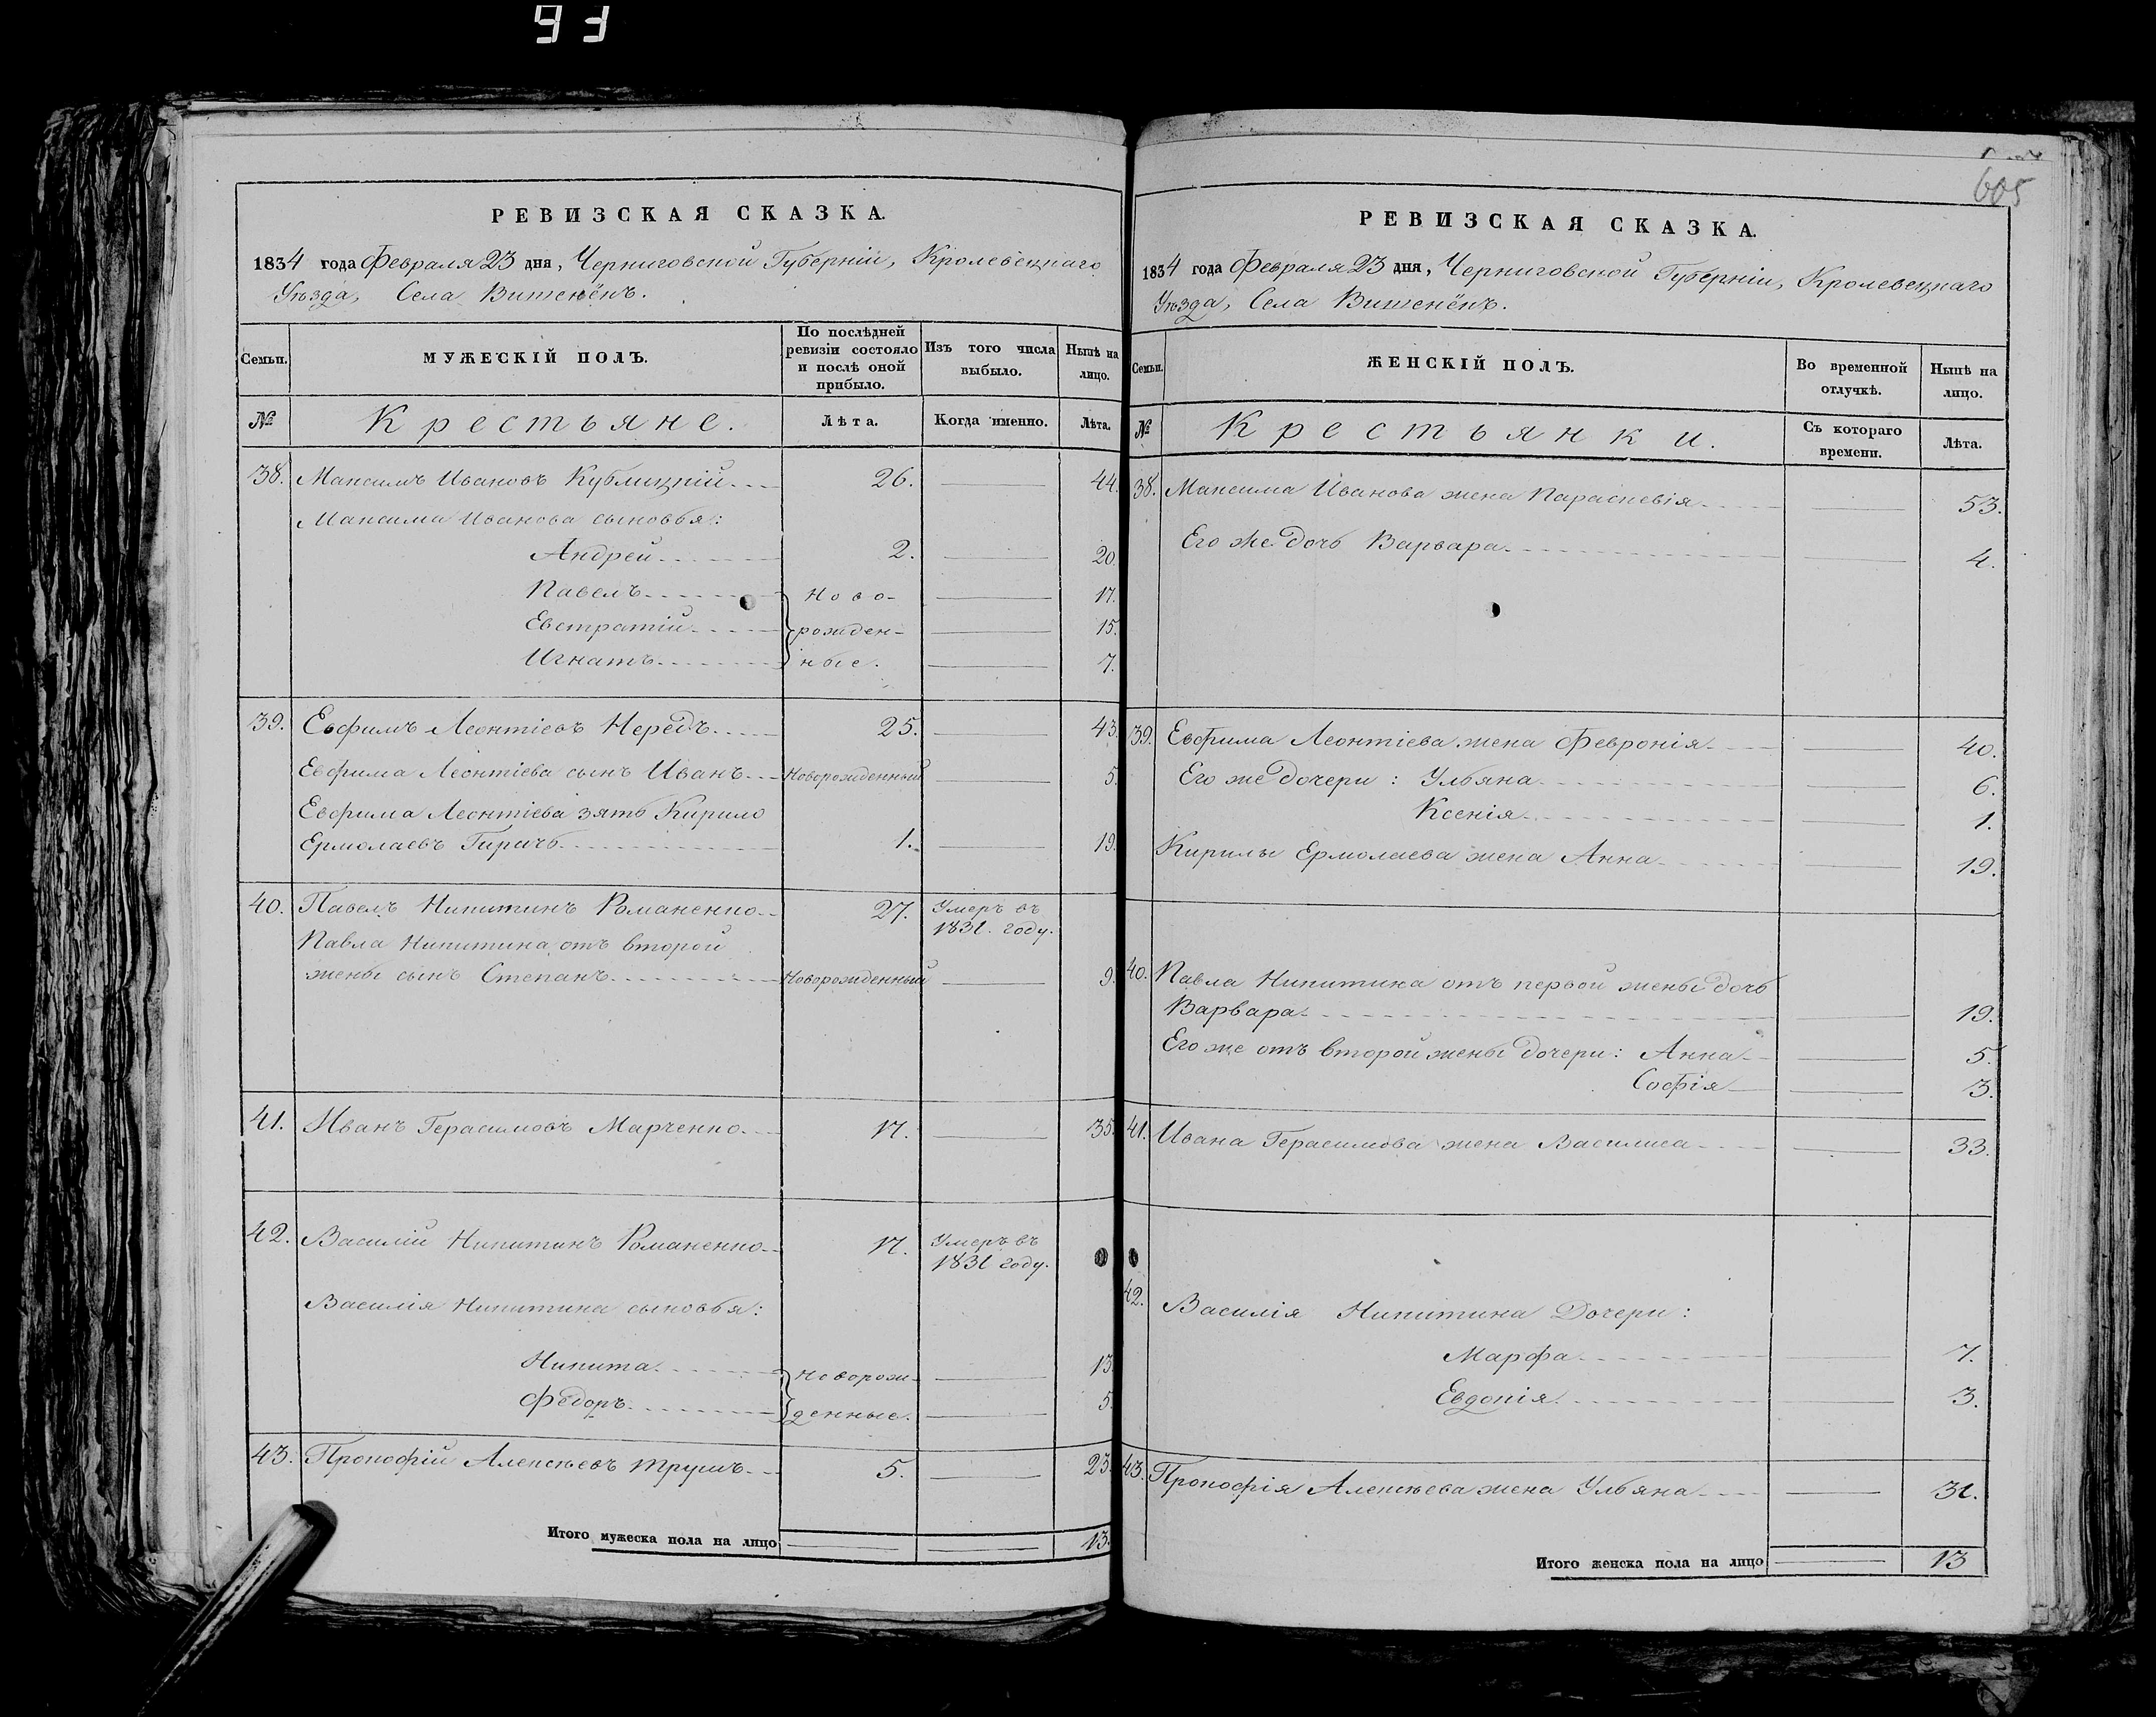 93
РЕВИЗСКАЯ СКАЗКА.
1834 года Февраля 23 дня, Черниговской Губерніи, Кролевецкаго
Уѣзда, Села Витенёнъ.
Семьи.
МУЖЕСКІЙ ПОЛЪ.
По послѣдней ревизіи состояло и послѣ оной прибыло.
Изъ того числа выбыло.
Нынѣ на лицо.
№ Крестьяне. Лѣта. Когда именно. Лѣта.
38. Максимъ Ивановъ Кублицкій 26. 44.
Максима Иванова сыновья:
Андрей 2. 20.
Павелъ Ново- 17.
Евстратій рожден- 15.
Игнатъ ные. 7.
39. Евфимъ Леонтіевъ Нередъ 25. 43.
Евфима Леонтіева сынъ Иванъ Новорожденный 5.
Евфима Леонтіева зять Кирило
Ермолаевъ Гирачъ 1. 19.
40. Павелъ Никитинъ Романенко 27. Умеръ въ
1831. году.
Павла Никитина отъ второй
жены сынъ Степанъ Новорожденный 9.
41. Иванъ Герасимовъ Марченко 17. 35.
42. Василій Никитинъ Романенко 17. Умеръ въ
1831 году.
0
Василія Никитина сыновья:
Никита Новорож- 13.
Федоръ денные. 5.
43. Прокофій Алексѣевъ Трушъ 5. 23.
Итого мужеска пола на лицо 13.
605
РЕВИЗСКАЯ СКАЗКА.
1834 года Февраля 23 дня, Черниговской Губерніи, Кролевецкаго
Уѣзда, Села Витенёнъ.
Семьи.
ЖЕНСКІЙ ПОЛЪ.
Во временной отлучкѣ.
Нынѣ на лицо.
№ Крестьянки. Съ котораго времени. Лѣта.
38. Максима Иванова жена Параскевія 53.
Его же дочь Варвара 4.
39. Евфима Леонтіева жена Февронія 40.
Его же дочери: Ульяна 6.
Ксенія 1.
Кирилы Ермолаева жена Анна 19.
40. Павла Никитина отъ первой жены дочь
Варвара 19.
Его же отъ второй жены дочери: Анна 5.
Софія 3.
41. Ивана Герасимова жена Василиса 33.
42. Василія Никитина Дочери:
Марфа 7.
Евдокія 3.
43. Прокофія Алексѣева жена Ульяна 31.
Итого женска пола на лицо 13